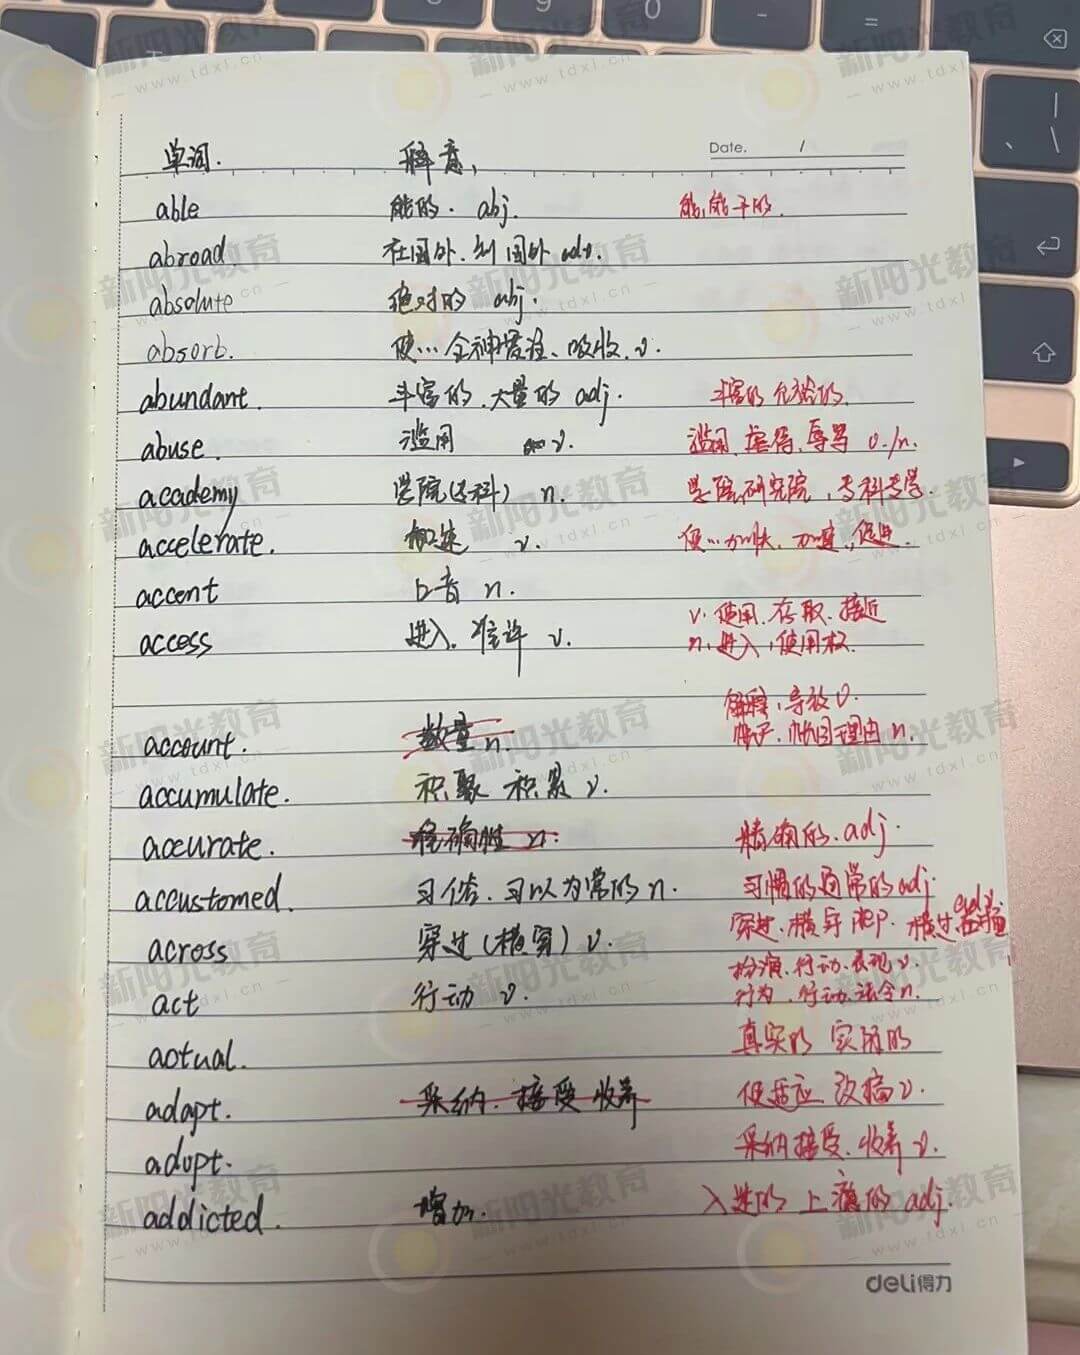 单词. 解意,
Date. /
able 能的. abj. 能,能干的.
abroad. 在国外.到国外 adv.
absolute 绝对的 abj.
absorb. 使…全神贯注、吸收.v.
abundant. 丰富的.大量的 adj. 丰富的 充裕的.
abuse. 滥用 v. 滥用.虐待.辱骂 v./n.
academy 学院(专科) n. 学院,研究院,专科专学.
accelerate. 加速 v. 使…加快.加速,促进.
accent 口音 n.
access 进入.准许 v. v.使用.存取.接近
n.进入,使用权.
解释,导致v.
account. 数量 n. 帐目理由 n.
accumulate. 积聚 积累 v.
accurate. 准确性 n. 精确的.adj.
accustomed. 习俗.习以为常的 n. 习惯的通常的adj.
across 穿过(横穿) v. 穿过.横穿 prep. 横过 adv.
扮演.行动.表现 v.
act 行动 v. 行为.行动.法令n.
actual. 真实的 实际的
adapt. 采纳.接受 收养 使适应.改编v.
adopt. 采纳接受.收养 v.
addicted. 增加. 入迷的 上瘾的 adj.
deli得力
新阳光教育
www.tdxl.cn